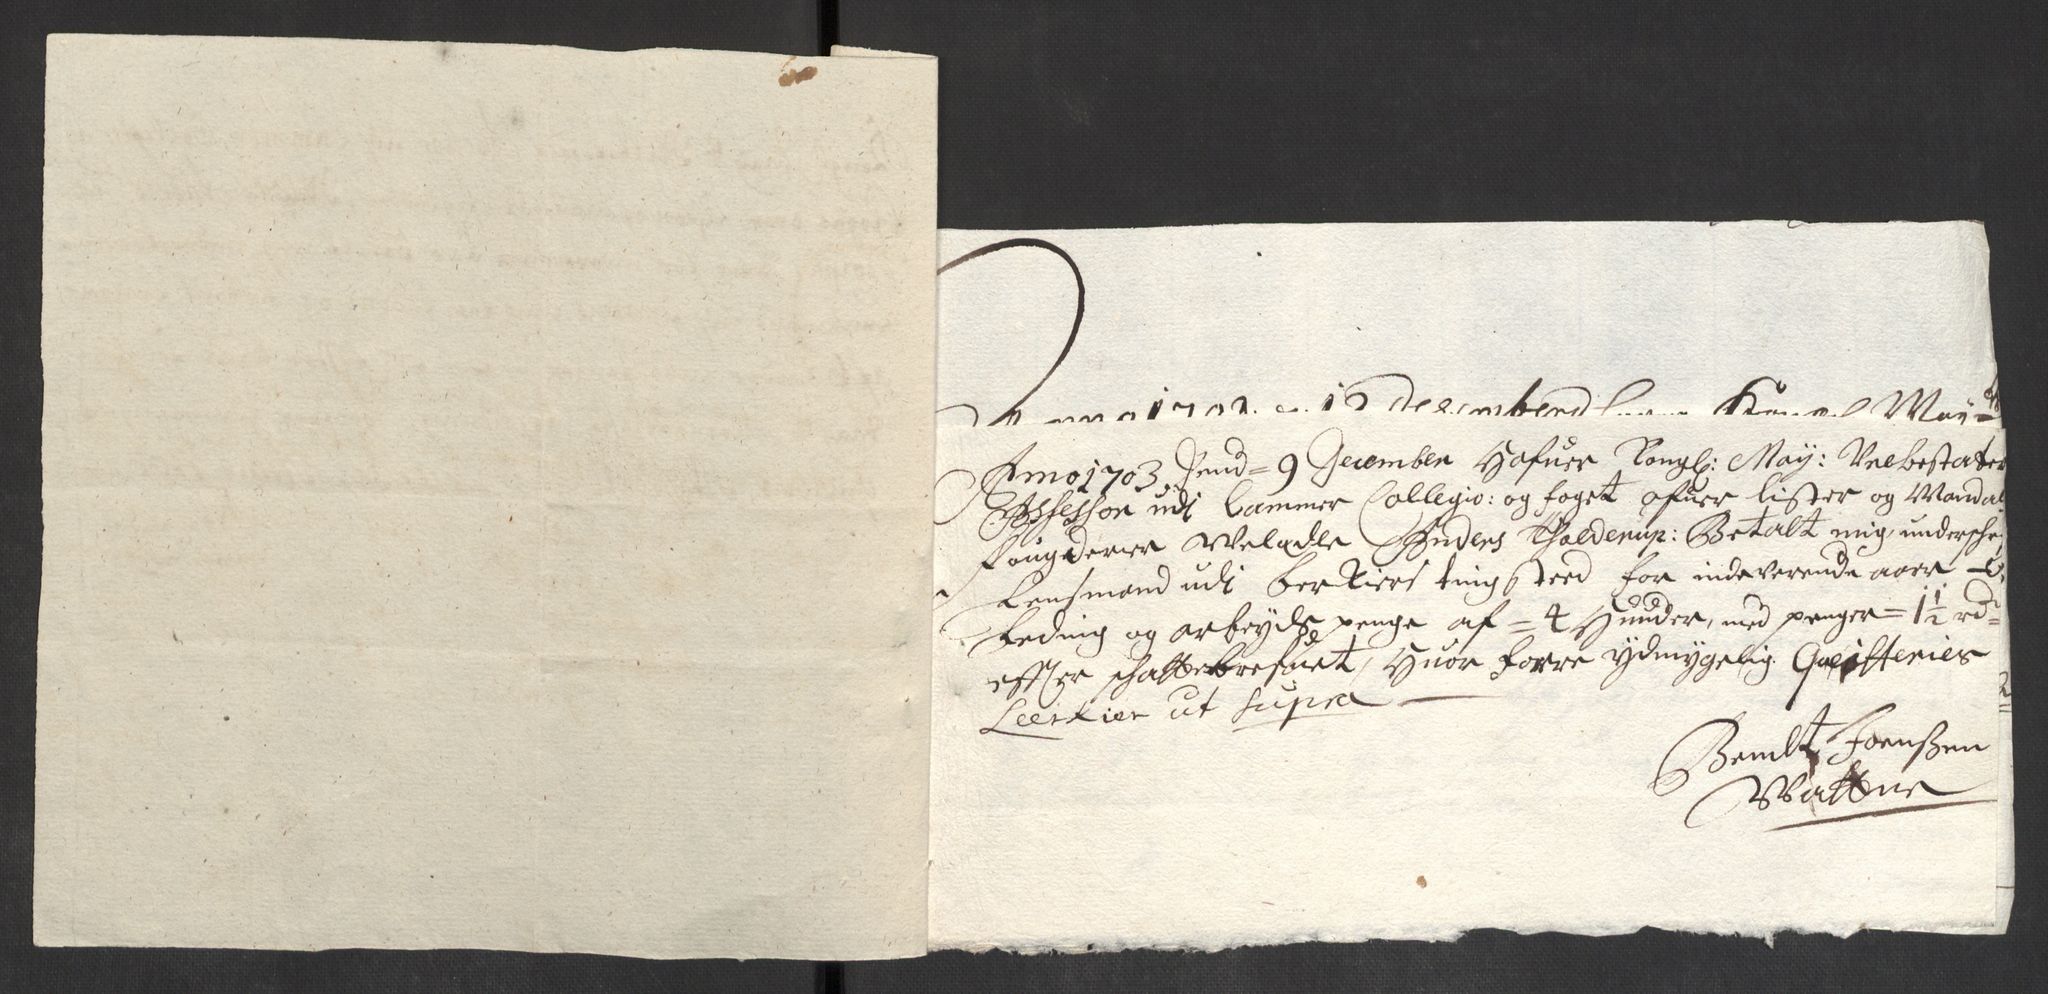 Anno 1703 d 12 decemberd Kongl May
Anno 1703 Dend = 9 December Hafuer Kongl: May: Velbestalter
Assessor udi Cammer Collegio: og foget ofuer lister og Mandal
fougderier Weladle Anders Tholderup: Betalt mig undersche
Lensmand udi berkiers tingsteed for indeverende aaer
leding og arbeyds penge af = 4 Hunder, med penger = 1 1/2 rd
effter schattebrefuet, Huor forre ydmygelig Quitteries
Leerkier ut supra
Bendt Joenßen
Wattne